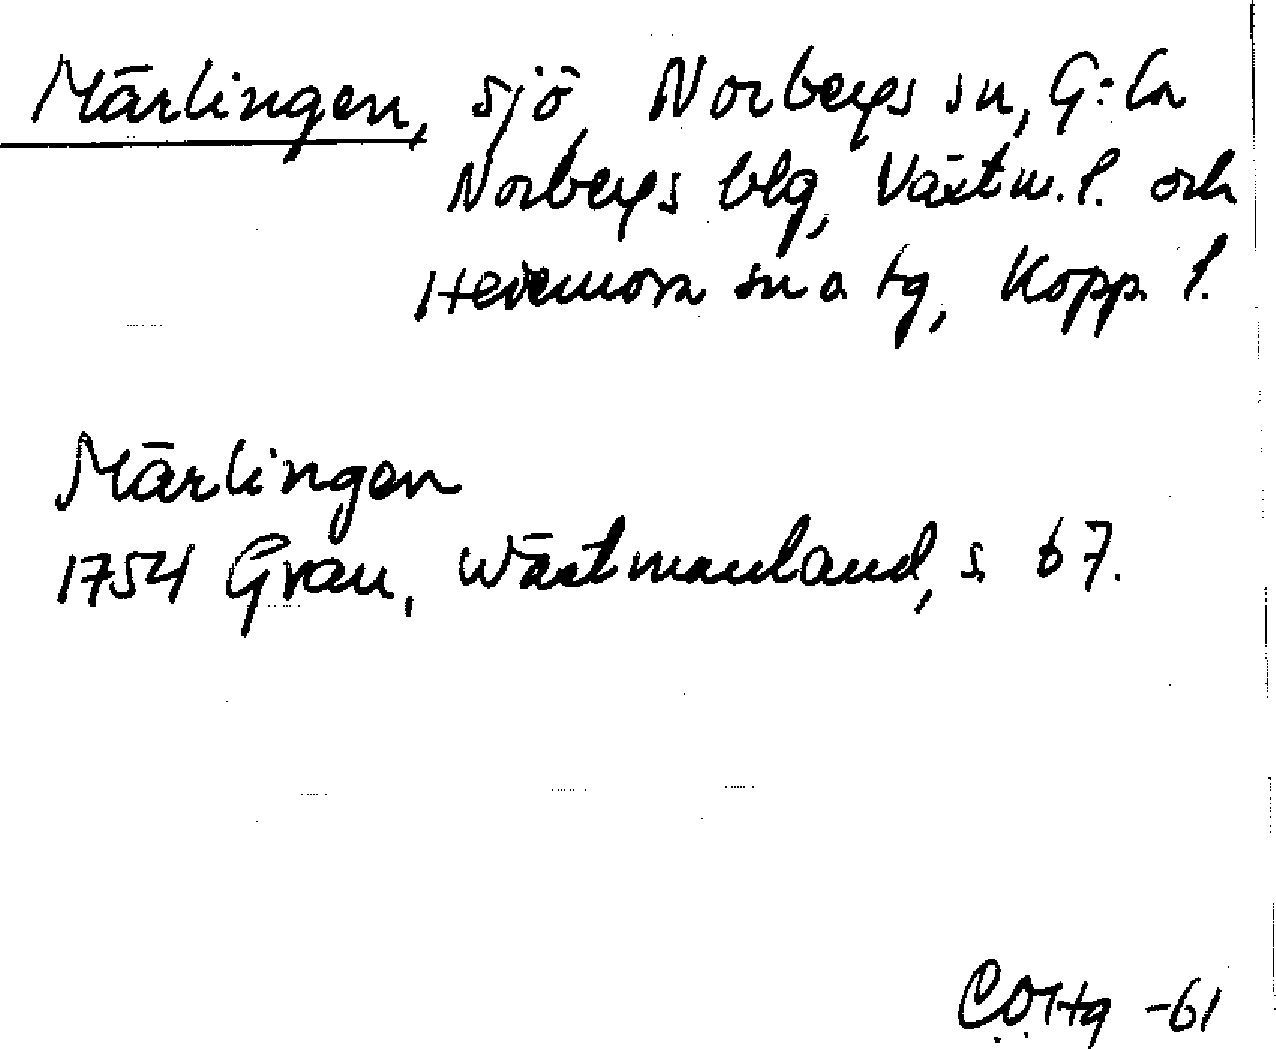 Märlingen, sjö, Norbergs sn, G:la
Norbergs blg, Västm. l. och
Hedemora sn o. tg, Kopp. l.
Märlingen
1754 Grau, Wästmanland, s 67.
-61